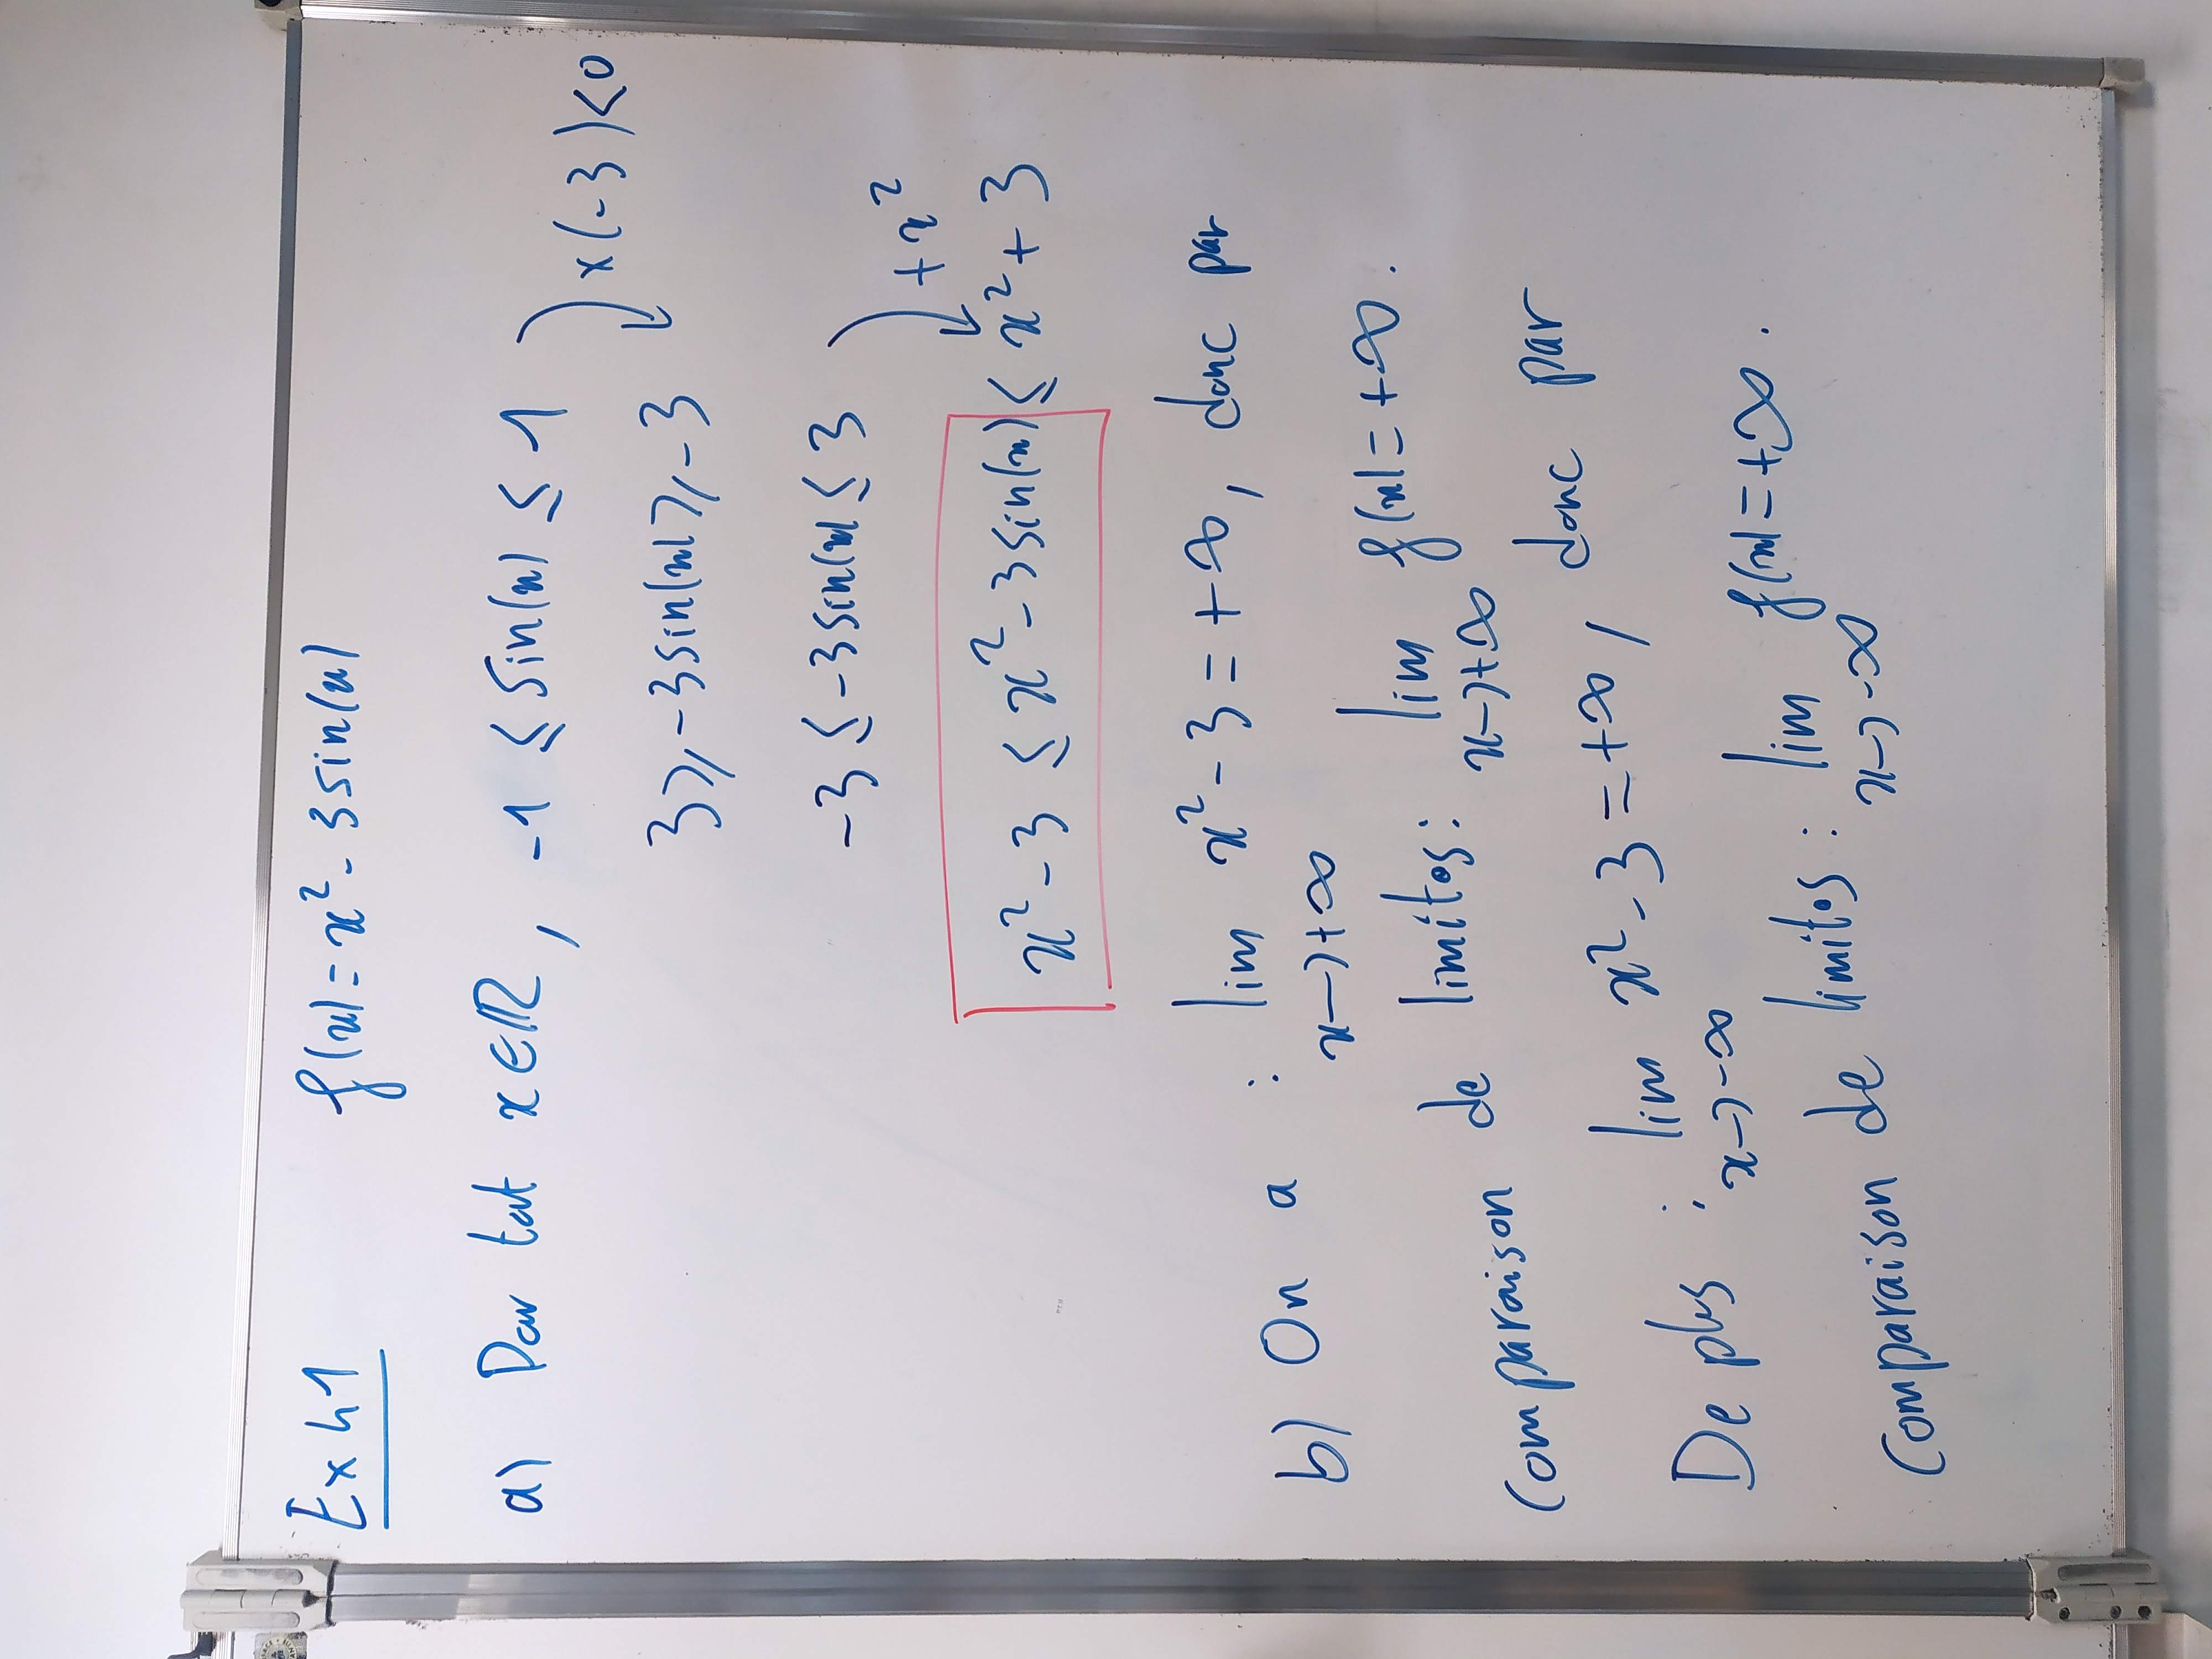 Ex 41 f(x) = x² - 3 sin(x)
a) Pour tout x ∈ ℝ, -1 ≤ sin(x) ≤ 1 ) x(-3) < 0
3 ≥ -3 sin(x) ≥ -3
-3 ≤ -3 sin(x) ≤ 3 ) + x²
x² - 3 ≤ x² - 3 sin(x) ≤ x² + 3
b) On a : lim x² - 3 = +∞, donc par
x→+∞
comparaison de limites : lim f(x) = +∞.
x→+∞
De plus : lim x² - 3 = +∞, donc par
x→-∞
comparaison de limites : lim f(x) = +∞.
x→-∞